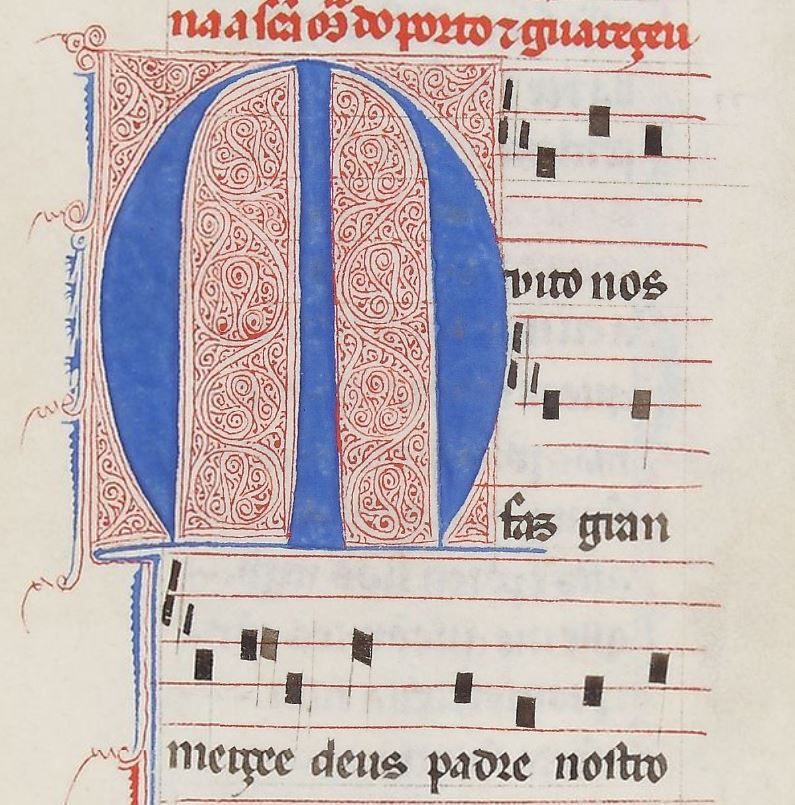 na a scã os̃ do porto ⁊ guareçeu
Muito nos
faz gran
merçee deus padre nostro